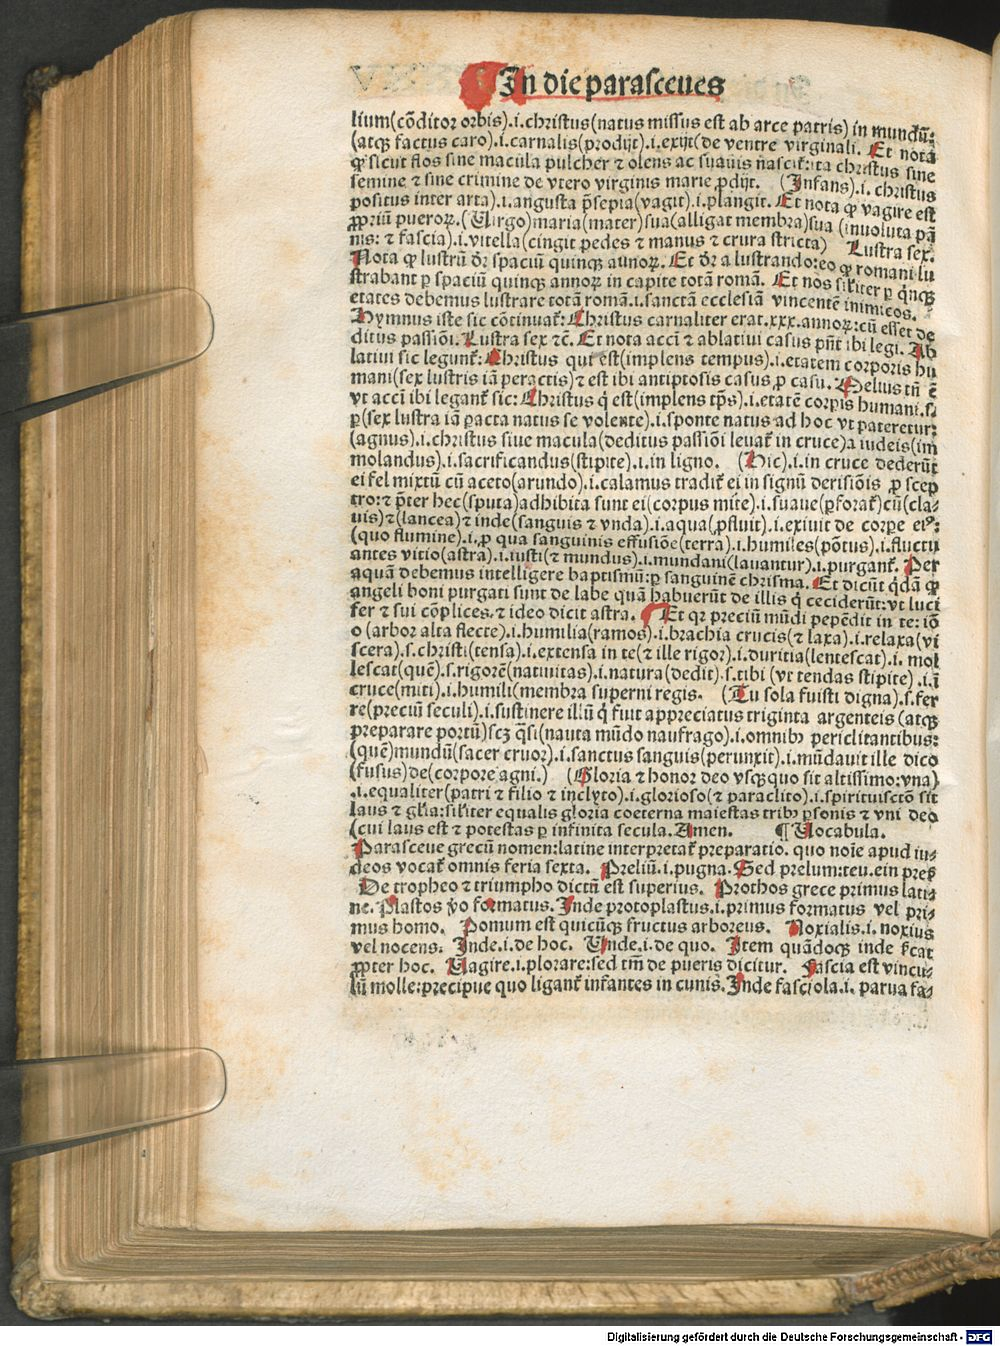 In die parasceues
lium(cōditor orbis).i.christus(natus missus est ab arce patris) in mundū:
(atqꝫ factus caro).i.carnalis(prodijt).i.exijt(de ventre virginali. Et nota
ꝙ sicut flos sine macula pulcher ⁊ olens ac suauis nascit᷑:ita christus sine
semine ⁊ sine crimine de vtero virginis marie ꝓdijt. (Infans).i. christus
positus inter arta).i.angusta p̄sepia(vagit).i.plangit. Et nota ꝙ vagire est
ꝓpriū pueroꝝ.(Uirgo)maria(mater)sua(alligat membra)sua (inuoluta pā
nis: ⁊ fascia).i.vitella(cingit pedes ⁊ manus ⁊ crura stricta) Lustra sex.
Nota ꝙ lustrū dr̄ spaciū quinqꝫ annoꝝ. Et dr̄ a lustrando:eo ꝙ romani lu
strabant ꝑ spaciū quinqꝫ annoꝝ in capite totā romā. Et nos sil̄iter ꝑ q̇nqꝫ
etates debemus lustrare totā romā.i.sanctā ecclesiā vincentē inimicos.
Hymnus iste sic cōtinuat᷑: Christus carnaliter erat.xxx.annoꝝ:cū esset de
ditus passiōi. Lustra sex ⁊c̄. Et nota accī ⁊ ablatiui casus pn̄t ibi legi. Ab
latiui sic legunt᷑: Christus qui est(implens tempus).i.etatem corporis hu
mani(sex lustris iā peractis)⁊ est ibi antiptosis casus ꝓ casu. Melius tn̄ ē
vt accī ibi legant᷑ sic: Christus q̇ est(implens tp̄s).i.etatē corꝑis humani.s.
ꝑ(sex lustra iā ꝑacta natus se volente).i.sponte natus ad hoc vt pateretur:
(agnus).i.christus siue macula(deditus passiōi leuat᷑ in cruce)a iudeis(im
molandus).i.sacrificandus(stipite).i.in ligno. (Hic).i.in cruce dederūt
ei fel mixtū cū aceto(arundo).i.calamus tradit᷑ ei in signū derisiōis ꝓ scep
tro:⁊ p̄ter hec(sputa)adhibita sunt ei(corpus mite).i.suaue(ꝑforat᷑)cū(cla-
uis)⁊(lancea)⁊ inde(sanguis ⁊ vnda).i.aqua(ꝓfluit).i.exiuit de corꝑe eiꝰ:
(quo flumine).i.ꝓ qua sanguinis effusiōe(terra).i.humiles(pōtus).i.fluctu
antes vitio(astra).i.iusti(⁊ mundus).i.mundani(lauantur).i.purgant᷑. Per
aquā debemus intelligere baptismū:ꝑ sanguinē chrisma. Et dicūt q̇dā ꝙ
angeli boni purgati sunt de labe quā habuerūt de illis q̇ ceciderūt:vt luci
fer ⁊ sui cōplices.⁊ ideo dicit astra. Et qꝛ preciū mūdi pepēdit in te: iō
o (arbor alta flecte).i.humilia(ramos).i.brachia crucis(⁊ laxa).i.relaxa(vi
scera).s.christi(tensa).i.extensa in te(⁊ ille rigor).i.duritia(lentescat).i. mol
lescat(quē).s.rigorē(natiuitas).i.natura(dedit).s.tibi (vt tendas stipite) .i.ī
cruce(miti).i.humili(membra superni regis. (Tu sola fuisti digna).s.fer
re(preciū seculi).i.sustinere illū q̇ fuit appreciatus triginta argenteis (atqꝫ
preparare portū)scꝫ q̄si(nauta mūdo naufrago).i.omnibꝫ periclitantibus:
(quē)mundū(sacer cruor).i.sanctus sanguis(perunxit).i.mūdauit ille dico
(fusus)de(corpore agni.) (Gloria ⁊ honor deo vsqꝫquo sit altissimo:vna)
.i.equaliter(patri ⁊ filio ⁊ inclyto).i.glorioso(⁊ paraclito).i.spirituisctō sit
laus ⁊ gl̄ia:sil̄iter equalis gloria coeterna maiestas tribꝫ ꝑsonis ⁊ vni deo
(cui laus est ⁊ potestas ꝑ infinita secula. Amen. ¶ Uocabula.
Parasceue grecū nomen:latine interpretat᷑ preparatio. quo noīe apud iu-
deos vocat᷑ omnis feria sexta. Preliū.i.pugna. Sed prelum:teu.ein preß
De tropheo ⁊ triumpho dictū est superius. Prothos grece primus lati-
ne. Plastos ꝟo formatus. Inde protoplastus.i.primus formatus vel pri-
mus homo. Pomum est quicūqꝫ fructus arboreus. Noxialis.i. noxius
vel nocens. Inde.i.de hoc. Unde.i.de quo. Item quādoqꝫ inde
ꝓpter hoc. Uagire.i.plorare:sed tm̄ de pueris dicitur. Fascia est vincu-
lū molle:precipue quo ligant᷑ infantes in cunis. Inde fasciola.i. parua fa-
Digitalisierung gefördert durch die Deutsche Forschungsgemeinschaft - DFG